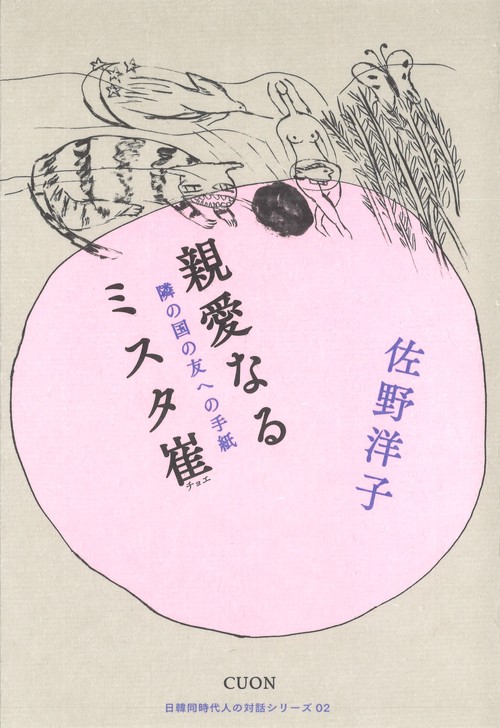 佐野洋子
親愛なる
ミスタ崔
チョエ
隣の国の友への手紙
CUON
日韓同時代人の対話シリーズ 02